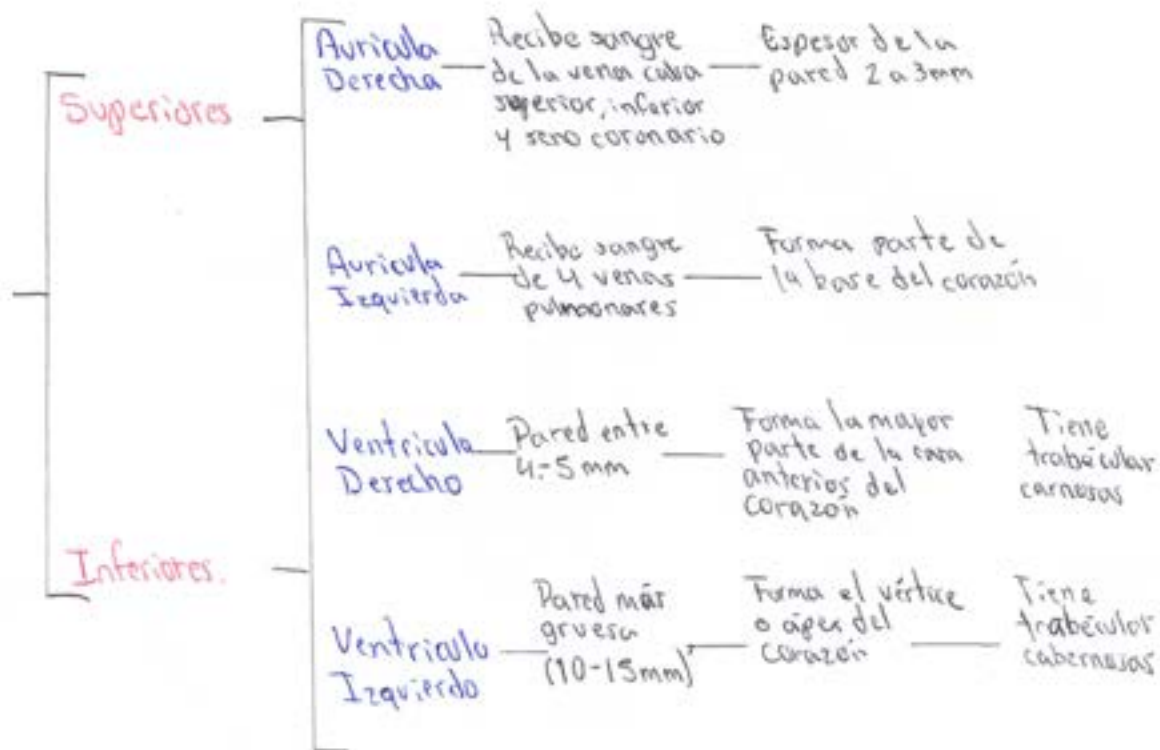 Superiores
Auricula
Derecha
Recibe sangre
de la vena cuba
superior, inferior
y seno coronario
Espesor de la
pared 2 a 3mm
Auricula
Izquierda
Recibe sangre
de 4 venas
pulmonares
Forma parte de
la base del corazón
Inferiores.
Ventriculo
Derecho
Pared entre
4-5mm
Forma la mayor
parte de la cara
anterios del
corazón
Tiene
trabécular
carnosas
Ventriculo
Izquierdo
Pared más
gruesa
(10-15mm)
Forma el vértice
o ápex del
corazón
Tiene
trabécular
cabernosas